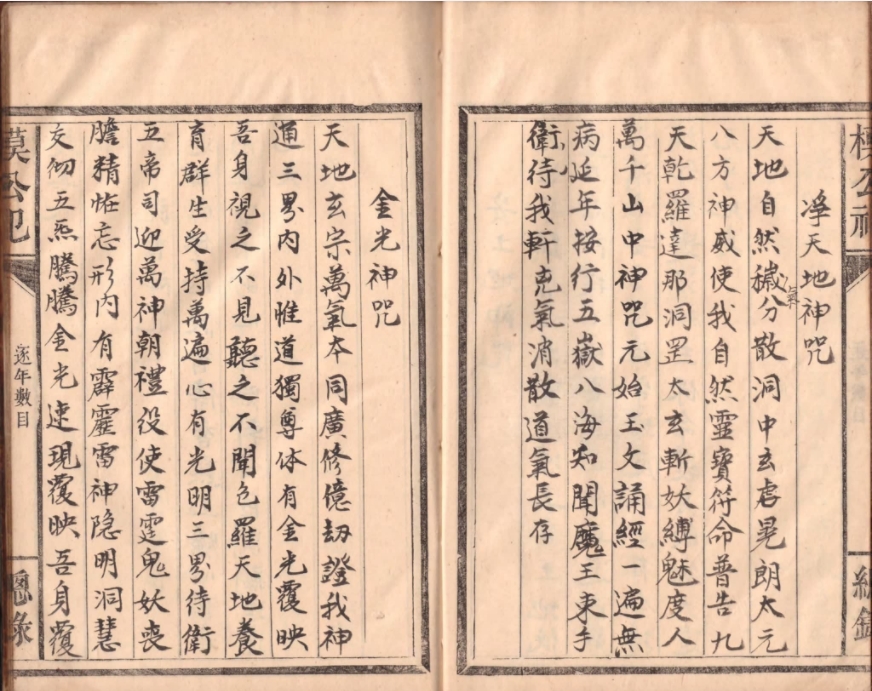 淨天地神咒
天地自然穢氣分散洞中玄虛晃朗太元
八方神威使我自然靈寶符命普告九
天乾羅達那洞罡太玄斬妖縛魅度人
萬千山中神咒元始玉文誦經一遍無
病延年按行五嶽八海知聞魔王束手
衛待我軒克氣消散道氣長存
金光神咒
天地玄宗萬氣本同廣修億劫證我神
通三界內外惟道獨尊体有金光覆映
吾身視之不見聽之不聞包羅天地養
育群生受持萬遍心有光明三界待衛
五帝司迎萬神朝禮役使雷霆鬼妖喪
膽精怪忘形內有霹靂雷神隐明洞慧
交彻五炁騰騰金光速現覆映吾身覆
公祀
逐年數目
總錄